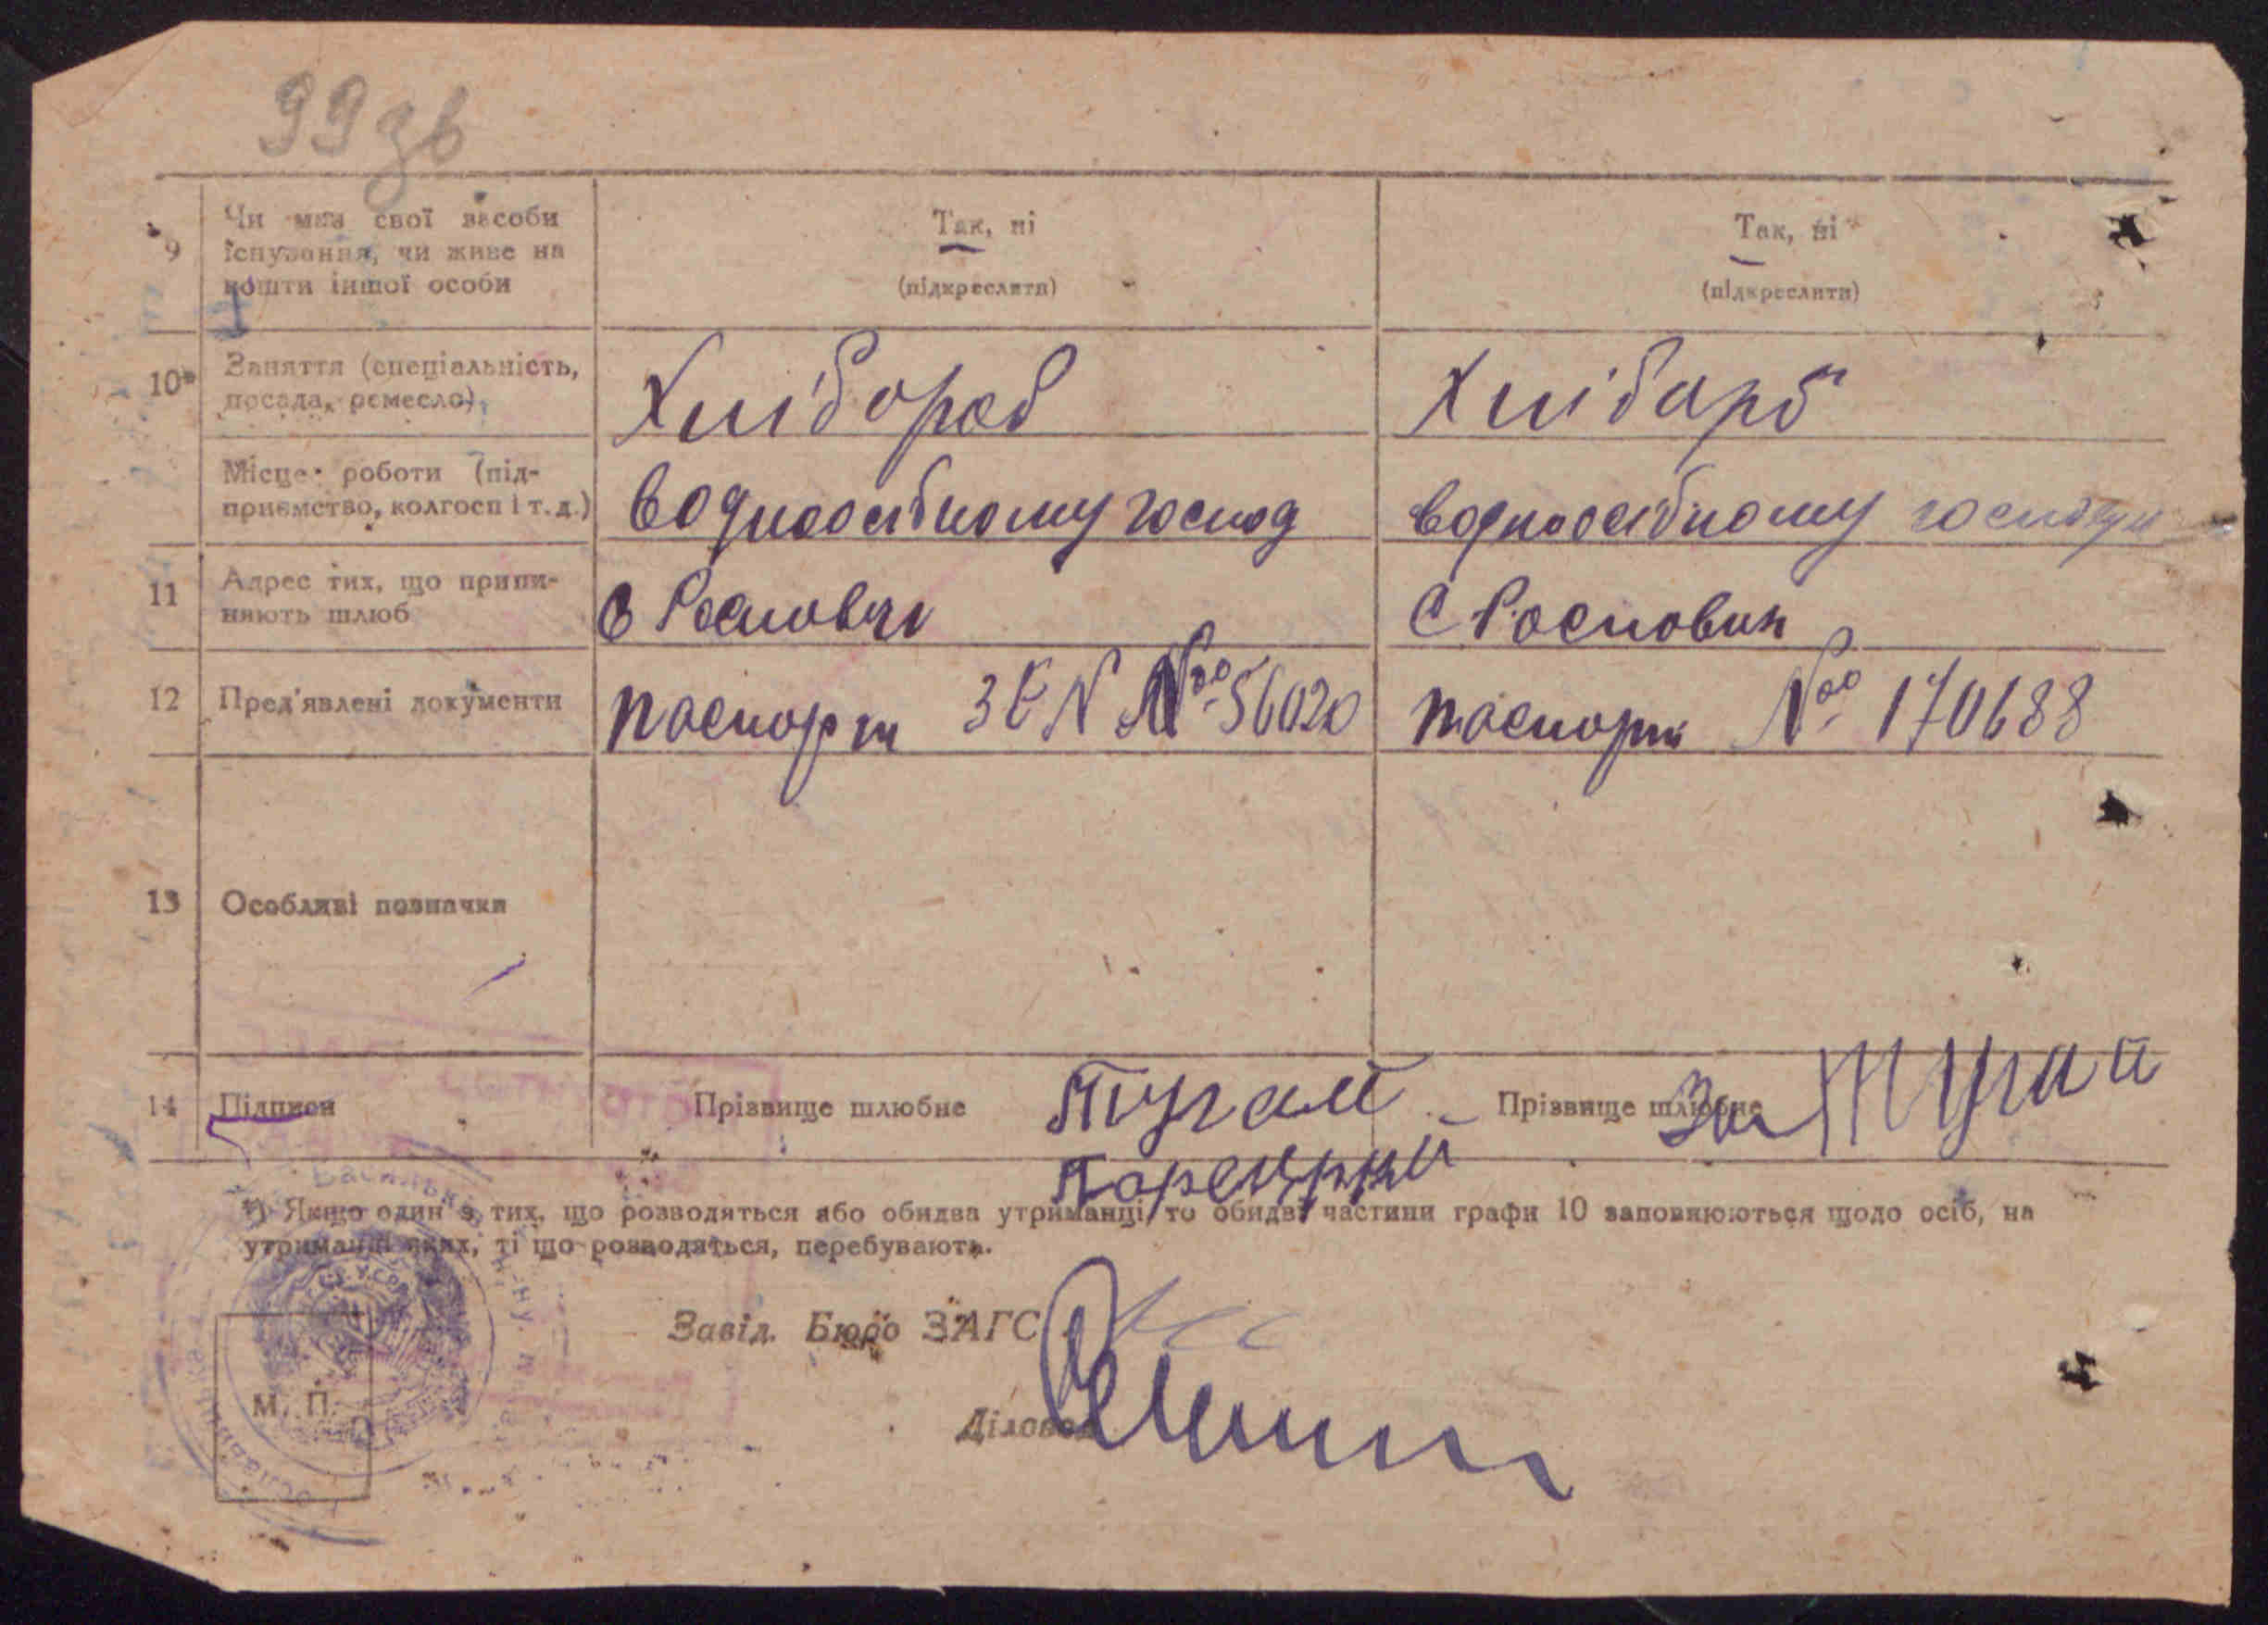 99 зв
9 Чи має свої засоби існування, чи живе на кошти іншої особи
Так, ні
(підкреслити)
Так, ні
(підкреслити)
10* Заняття (спеціальність, посада, ремесло)
Хлібороб
Хлібороб
Місце роботи (підприємство, колгосп і т. д.)
Водноосібному господ
водноосібному господ
11 Адрес тих, що припиняють шлюб
С Росновичі
С Росновик
12 Пред'явлені документи
паспорт ЗЕN № 56020
паспорт № 170688
13 Особливі позначки
14 Підписи
Прізвище шлюбне
Тугай
Прізвище шлюбне
За Тугай
*) Якщо один з тих, що розводяться або обидва утриманці, то обидві частини графи 10 заповнюються щодо осіб, на
утриманні яких, ті що розводяться, перебувають.
Завід. Бюро ЗАГС
Діловод
М. П.